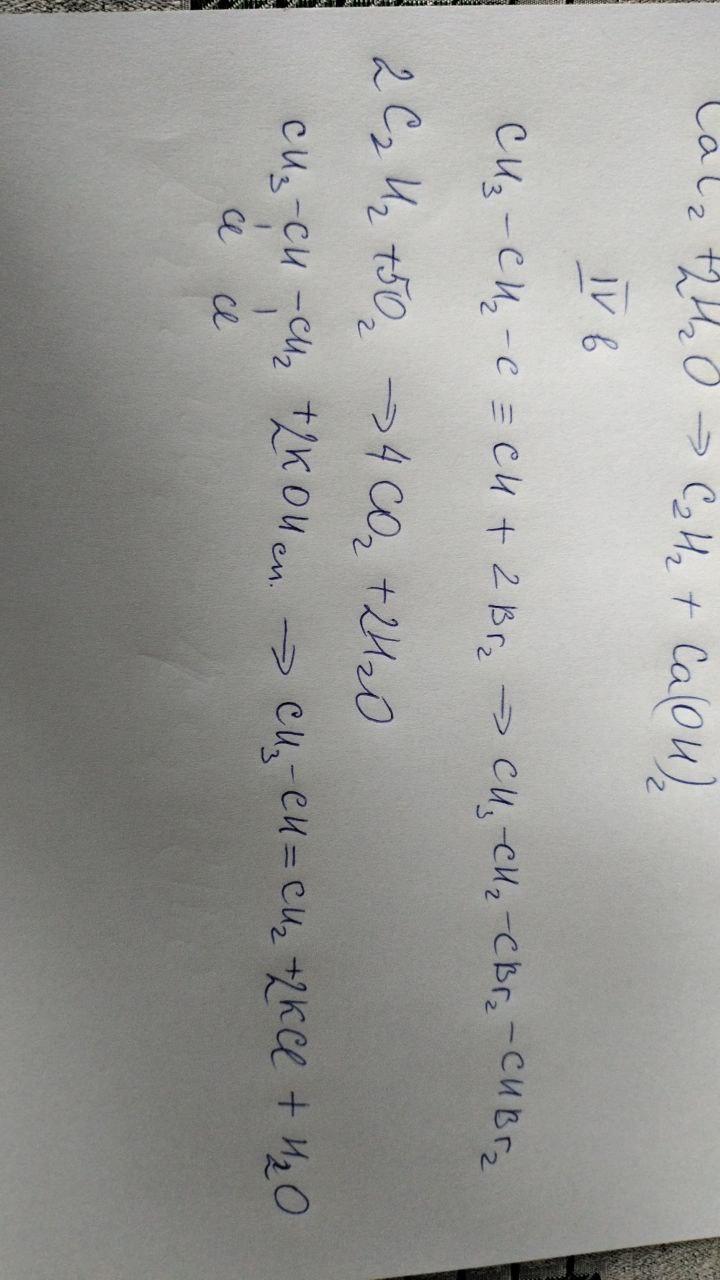 CaC₂ + 2H₂O → C₂H₂ + Ca(OH)₂
IV в
CH₃ – CH₂ – C ≡ CH + 2Br₂ → CH₃ – CH₂ – CBr₂ – CHBr₂
2C₂H₂ + 5O₂ → 4CO₂ + 2H₂O
CH₃ – CH – CH₂ + 2KOH сп. → CH₃ – CH = CH₂ + 2KCl + H₂O
Cl Cl